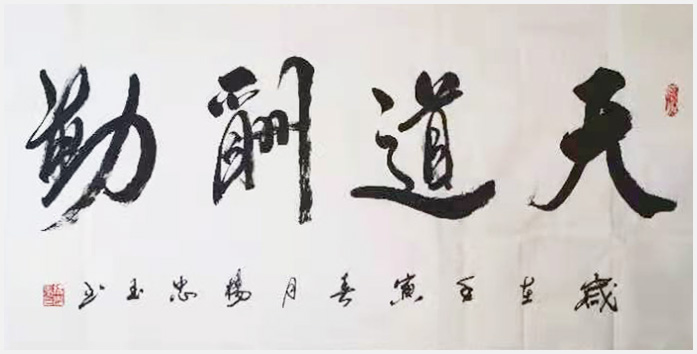 天道酬勤
岁在壬寅春月杨忠玉书